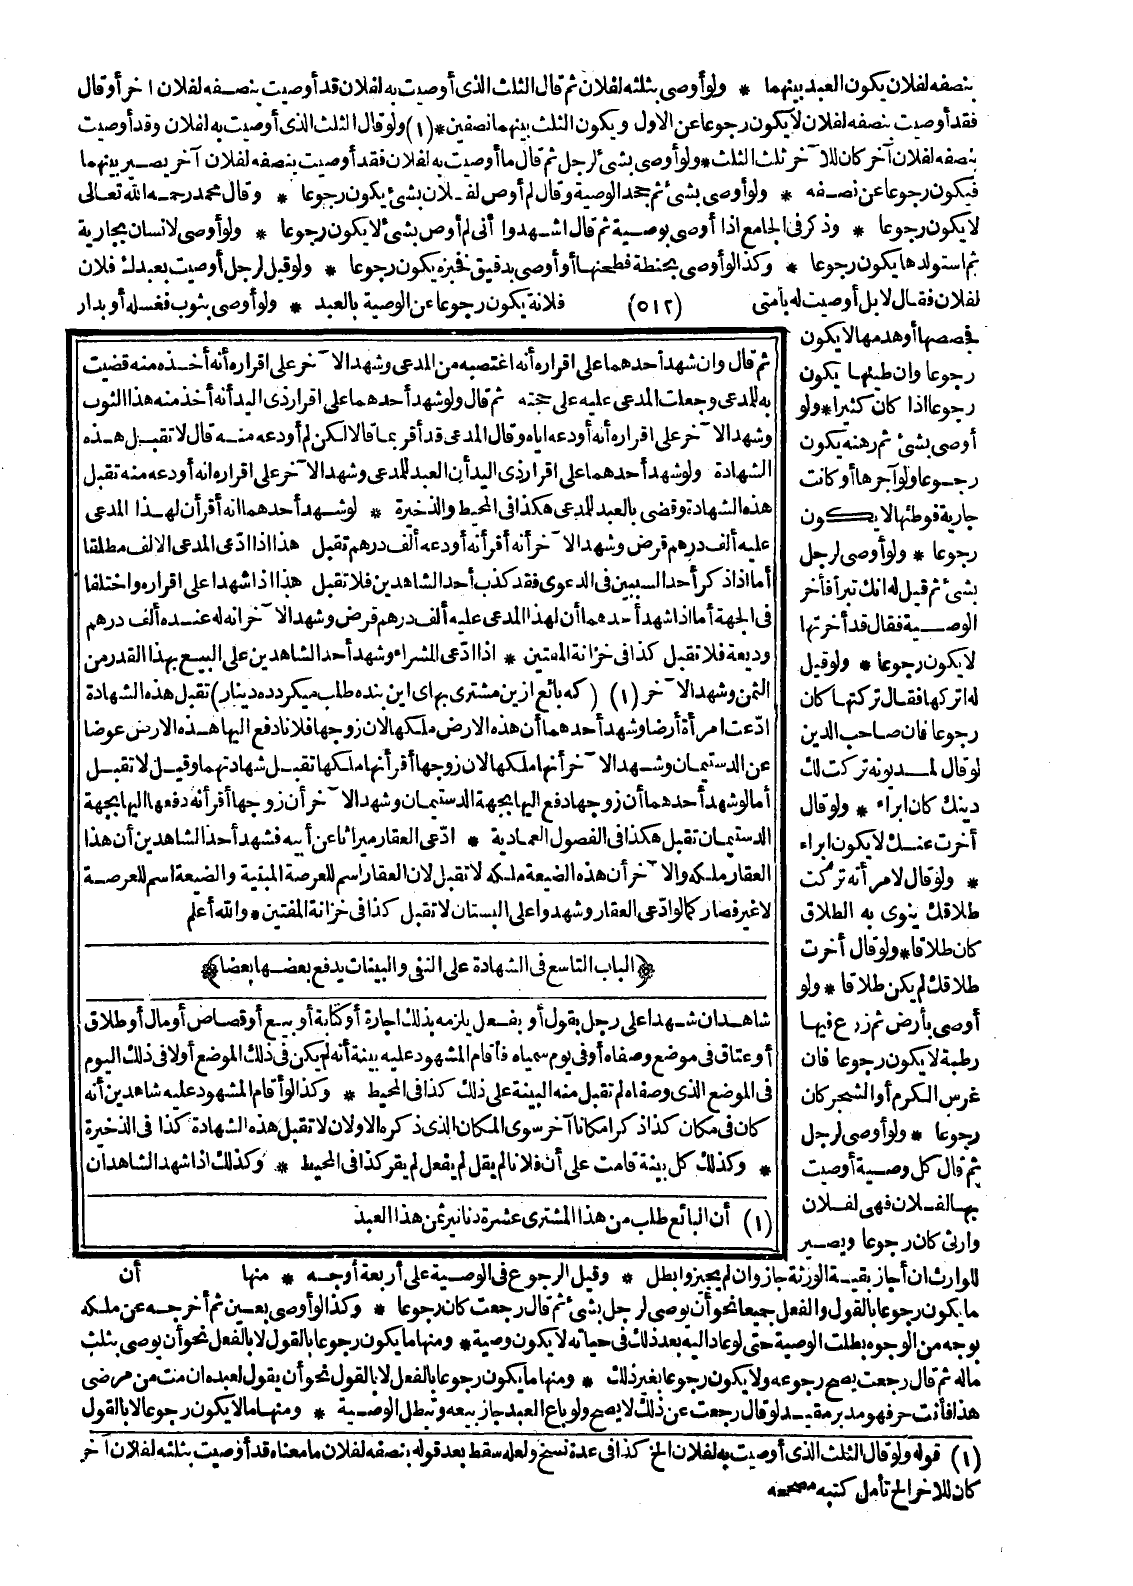 بنصفه لفلان يكون العبد بينهما * ولو أوصى بثلثه لفلان ثم قال الثلث الذى أوصيت به لفلان قد أوصيت بنصفه لفلان اخر أو قال
فقد أوصيت بنصفه لفلان لا يكون رجوعا عن الاول ويكون الثلث بينهما نصفين * (١) ولو قال الثلث الذى أوصيت به لفلان وقد أوصيت
بنصفه لفلان آخر كان للآخر ثلث الثلث * ولو أوصى بشئ لرجل ثم قال ما أوصيت به لفلان فقد أوصيت بنصفه لفلان آخر يصير بينهما
فيكون رجوعا عن نصفه * ولو أوصى بشئ ثم جحد الوصية وقال لم أوص لفلان بشئ يكون رجوعا * وقال محمد رحمه الله تعالى
لا يكون رجوعا * وذكر فى الجامع اذا أوصى بوصية ثم قال اشهدوا أنى لم أوص بشئ لا يكون رجوعا * ولو أوصى لانسان بجارية
ثم استولدها يكون رجوعا * وكذا لو أوصى بحنطة فطحنها أو أوصى بدقيق فخبزه يكون رجوعا * ولو قيل لرجل أوصيت بعبدك فلان
لفلان فقال لا بل أوصيت له بأمتى (٥١٢) فلانة يكون رجوعا عن الوصية بالعبد * ولو أوصى بثوب فغسله أو بدار
فجصصها أو هدمها لا يكون
رجوعا وان طينها يكون
رجوعا اذا كان كثيرا * ولو
أوصى بشئ ثم رهنه يكون
رجوعا ولو آجرها أو كانت
جارية فوطئها لا يكون
رجوعا * ولو أوصى لرجل
بشئ ثم قيل له انك تبرأ فأخر
الوصية فقال قد أخرتها
لا يكون رجوعا * ولو قيل
له اتركها فقال تركتها كان
رجوعا فان صاحب الدين
لو قال لمديونه تركت لك
دينك كان ابراء * ولو قال
أخرت عنك لا يكون ابراء
* ولو قال لامرأته تركت
طلاقك ينوى به الطلاق
كان طلاقا * ولو قال أخرت
طلاقك لم يكن طلاقا * ولو
أوصى بأرض ثم زرع فيها
رطبة لا يكون رجوعا فان
غرس الكرم أو الشجر كان
رجوعا * ولو أوصى لرجل
ثم قال كل وصية أوصيت
بها لفلان فهى لفلان
وارثى كان رجوعا ويصير
للوارث ان أجاز بقية الورثة جاز وان لم يجيزوا بطل * وقيل الرجوع فى الوصية على أربعة أوجه * منها أن
ما يكون رجوعا بالقول والفعل جميعا نحو أن يوصى لرجل بشئ ثم قال رجعت كان رجوعا * وكذا لو أوصى بعين ثم أخرجه عن ملكه
بوجه من الوجوه بطلت الوصية حتى لو عاد اليه بعد ذلك فى حياته لا يكون وصية * ومنها ما يكون رجوعا بالقول لا بالفعل نحو أن يوصى بثلث
ماله ثم قال رجعت يصح رجوعه ولا يكون رجوعا بغير ذلك * ومنها ما يكون رجوعا بالفعل لا بالقول نحو أن يقول لعبده ان مت من مرضى
هذا فأنت حر فهو مدبر مقيد لو قال رجعت عن ذلك لا يصح ولو باع العبد جاز بيعه وتبطل الوصية * ومنها ما لا يكون رجوعا لا بالقول
(١) قوله ولو قال الثلث الذى أوصيت به لفلان الخ كذا فى عدة نسخ ولعله سقط بعد قوله بنصفه لفلان ما معناه قد أوصيت بثلثه لفلان آخر
كان للاخر الخ تأمل كتبه مصححه
ثم قال وان شهد أحدهما على اقراره أنه اغتصبه من المدعى وشهد الآخر على اقراره أنه أخذه منه قضيت
به للمدعى وجعلت المدعى عليه على حجته ثم قال ولو شهد أحدهما على اقرار ذى اليد أنه أخذ منه هذا الثوب
وشهد الآخر على اقراره أنه أودعه اياه وقال المدعى قد أقر بما قالا لكن لم أودعه منه قال لا تقبل هذه
الشهادة ولو شهد أحدهما على اقرار ذى اليد أن العبد للمدعى وشهد الآخر على اقراره انه أودعه منه تقبل
هذه الشهادة وقضى بالعبد للمدعى هكذا فى المحيط والذخيرة * لو شهد أحدهما انه أقر أن لهذا المدعى
عليه ألف درهم قرض وشهد الآخر أنه أقر أنه أودعه ألف درهم تقبل هذا اذا ادعى المدعى الالف مطلقا
أما اذا ذكر أحد السببين فى الدعوى فقد كذب أحد الشاهدين فلا تقبل هذا اذا شهدا على اقراره واختلفا
فى الجهة أما اذا شهد أحدهما أن لهذا المدعى عليه ألف درهم قرض وشهد الآخر انه له عنده ألف درهم
وديعة فلا تقبل كذا فى خزانة المفتين * اذا ادعى الشراء وشهد أحد الشاهدين على البيع بهذا القدر من
الثمن وشهد الآخر (١) (كه بائع ازين مشترى بهاى اين بنده طلب ميكرد ده دينار) تقبل هذه الشهادة
ادعت امرأة أرضا وشهد أحدهما أن هذه الارض ملكها لان زوجها فلانا دفع اليها هذه الارض عوضا
عن الدستيمان وشهد الآخر أنها ملكها لان زوجها أقر أنها ملكها تقبل شهادتهما وقيل لا تقبل
أما لو شهد أحدهما أن زوجها دفع اليها بجهة الدستيمان وشهد الآخر أن زوجها أقر أنه دفعها اليها بجهة
الدستيمان تقبل هكذا فى الفصول العمادية * ادعى العقار ميراثا عن أبيه فشهد أحد الشاهدين أن هذا
العقار ملكه والآخر أن هذه الضيعة ملكه لا تقبل لان العقار اسم للعرصة المبنية والضيعة اسم للعرصة
لا غير فصار كما لو ادعى العقار وشهدوا على البستان لا تقبل كذا فى خزانة المفتين * والله أعلم
﴿الباب التاسع فى الشهادة على النفى والبينات يدفع بعضها بعضا﴾
شاهدان شهدا على رجل بقول أو بفعل يلزمه بذلك اجارة أو كتابة أو بيع أو قصاص أو مال أو طلاق
أو عتاق فى موضع وصفاه أو فى يوم سمياه فأقام المشهود عليه بينة أنه لم يكن فى ذلك الموضع أو لا فى ذلك اليوم
فى الموضع الذى وصفاه لم تقبل منه البينة على ذلك كذا فى المحيط * وكذا لو أقام المشهود عليه شاهدين أنه
كان فى مكان كذا ذكرا مكانا آخر سوى المكان الذى ذكره الاولان لا تقبل هذه الشهادة كذا فى الذخيرة
* وكذلك كل بينة قامت على أن فلانا لم يقل لم يفعل لم يقر كذا فى المحيط * وكذلك اذا شهد الشاهدان
(١) أن البائع طلب من هذا المشترى عشرة دنانير ثمن هذا العبد